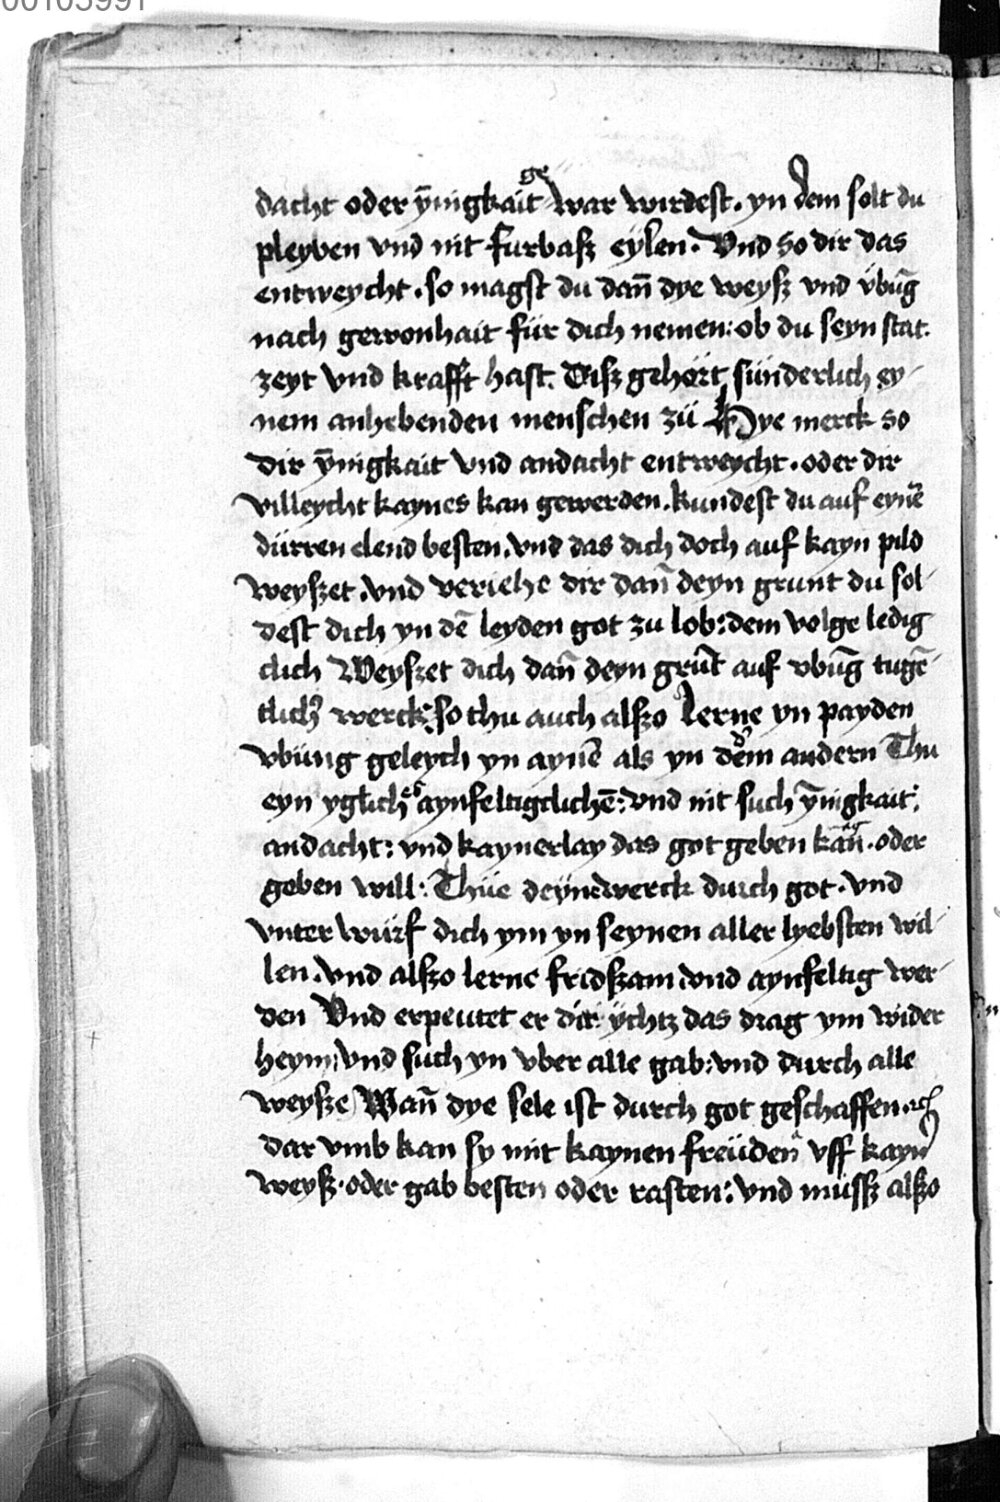 00103991
dacht oder ȳnigkait ge war wirdest. yn dem solt du
pleyben vnd nit furbasz eylen. Vnd so dir das
entweycht. so magst du dan̄ dye weysz vnd vbūg
nach gewonhait für dich nemen: ob du seyn stat.
zeyt vnd krafft hast. Disz gehört sünderlich ey-
nem anhebenden menschen zü Hye merck so
dir ȳnigkait vnd andacht entweycht. oder dir
villeycht kaynes kan gewerden. kundest du auf eynē
dürren elend besten. vnd das dich doch auf kayn pild
weyszet. vnd veriehe dir dan̄ deyn grunt du sol-
dest dich yn dē leyden got zu lob: dem volge ledig
clich Weyszet dich dan̄ deyn grūt auf vbūg tugē-
tlicher werck: so thu auch alszo lerne yn payden
vbüng geleych yn aynē als yn dem andern Thu
eyn yglichs aynfeltigclichē: vnd nit such ȳnigkait:
andacht: vnd kaynerlay das got geben kan̄. oder
geben will: Thüe deyne werck durch got. vnd
vnter würf dich ym yn seynen aller lyebsten wil-
len. vnd alszo lerne fridszam vnd aynfeltig wer-
den Vnd erpeutet er dir ychtz das drag ym wider
heym: vnd such yn vber alle gab: vnd durch alle
weysze Wan̄ dye sele ist durch got geschaffen.
dar vmb kan sy mit kaynen freüden vff kayn
weysz. oder gab besten oder rasten: vnd müssz alszo